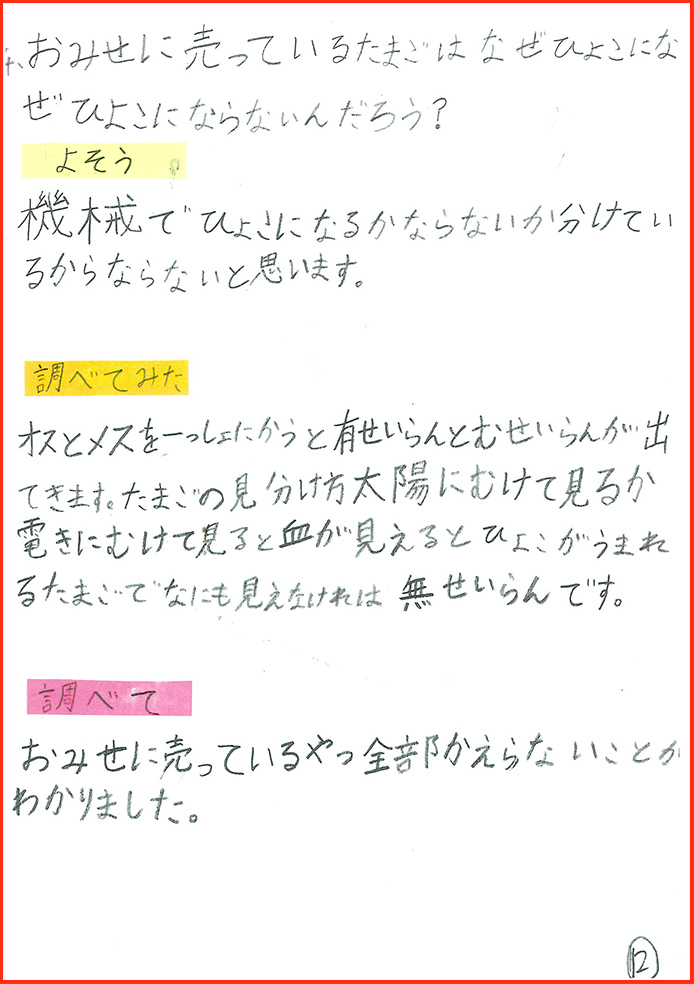 おみせに売っているたまごはなぜひよこにな
ぜひよこにならないんだろう？
よそう
機械でひよこになるかならないか分けてい
るからならないと思います。
調べてみた
オスとメスを一っしょにかうと有せいらんとむせいらんが出
てきます。たまごの見分け方太陽にむけて見るか
電きにむけて見ると血が見えるとひよこがうまれ
るたまごでなにも見えなければ無せいらんです。
調べて
おみせに売っているやつ全部かえらないことが
わかりました。
12